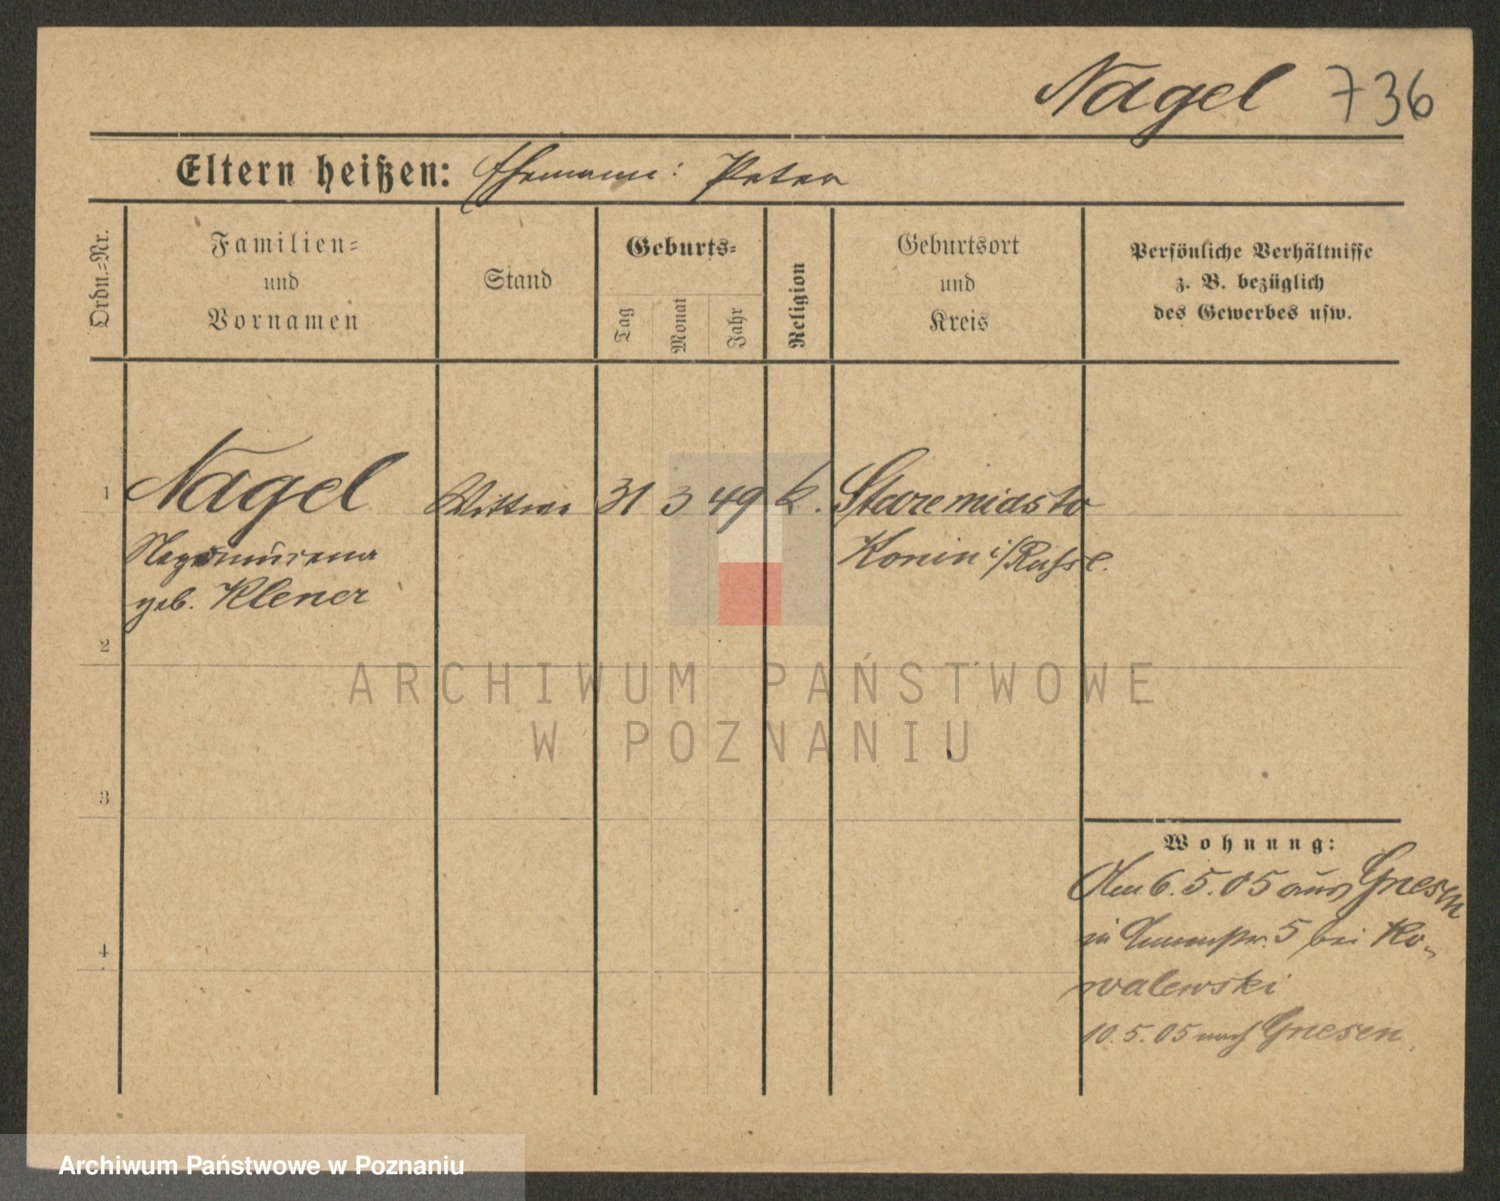 Nagel 736
Eltern heißen: Ehemann: Peter
Ordn.=Nr.
Familien=
und
Vornamen
Stand
Geburts=
Tag
Monat
Jahr
Religion
Geburtsort
und
Kreis
Persönliche Verhältnisse
z. B. bezüglich
des Gewerbes usw.
1 Nagel Wittwe 31 3 49 k. Staremiasto
Konin i/Russl.
geb. Klener
2
3
4
Wohnung:
Am 6.5.05 aus Gnesen
in 5 bei Ko-
walewski
10.5.05 nach Gnesen
ARCHIWUM PAŃSTWOWE
W POZNANIU
Archiwum Państwowe w Poznaniu